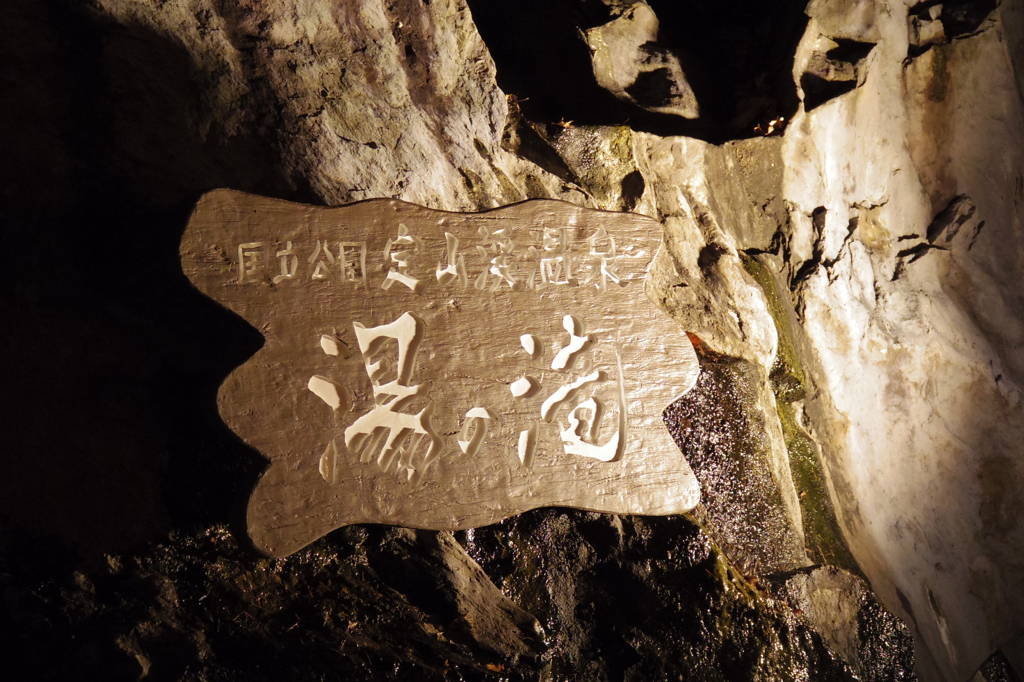 国立公園定山溪温泉
湯の滝